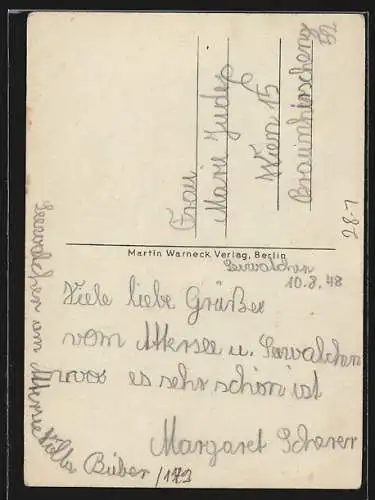 Frau
Marie Judex
Wien 15
Braunhirscheng
52
28-7
Martin Warneck Verlag, Berlin
Seewalchen
10.8.48
Viele liebe Grüße
vom Attersee u. Seewalchen
wo es sehr schön ist
Margaret Scherer
Seewalchen am Attersee
Büber /173